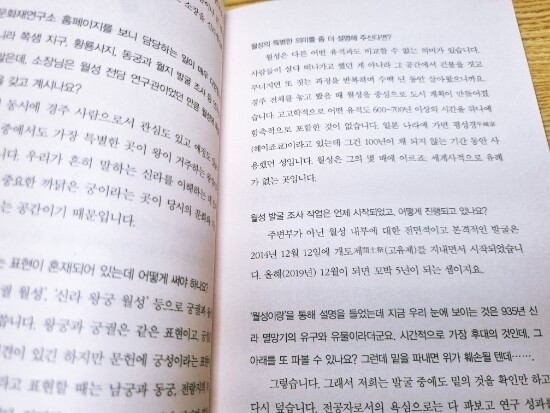 문화재연구소 홈페이지를 보니 담당하는 일이 매우 다양
나라 쪽샘 지구, 황룡사지, 동궁과 월지 발굴 조사 등
많은데, 소장님은 월성 전담 연구관이었던 만큼 월성
갖고 계시나요?
동시에 경주 사람으로서 관심도 있고 애정도
중에서도 가장 특별한 곳이 왕이 거주하는
니다. 우리가 흔히 말하는 신라를 이해하는 데
중요한 까닭은 궁이라는 곳이 당시의 문화와
는 공간이기 때문입니다.
는 표현이 혼재되어 있는데 어떻게 써야 하나요?
궐 월성', '신라 왕궁 월성' 등으로 궁궐과
씁니다. 왕궁과 궁궐은 같은 표현이고, 궁
견이 있긴 하지만 문헌에 궁성이라는 표현
라고 표현할 때는 남궁과 동궁, 전랑지
월성의 특별한 의미를 좀 더 설명해 주신다면?
월성은 다른 어떤 유적과도 비교할 수 없는 의미가 있습니다.
사람들이 살다 떠나가고 했던 게 아니라 그 공간에서 건물을 짓고
무너지면 또 짓는 과정을 반복하며 수백 년 동안 살아왔으니까요.
경주 전체를 놓고 봤을 때 월성을 중심으로 도시 계획이 만들어졌
습니다. 고고학적으로 어떤 유적도 600~700년 이상의 시간을 하나에
함축적으로 포함한 것이 없습니다. 일본 나라에 가면 평성궁平城宮
(헤이죠쿄)이라고 있는데 그건 100년이 채 되지 않는 기간 동안 사
용했던 성입니다. 월성은 그의 몇 배에 이르죠. 세계사적으로 유례
가 없는 곳입니다.
월성 발굴 조사 작업은 언제 시작되었고, 어떻게 진행되고 있나요?
주변부가 아닌 월성 내부에 대한 전면적이고 본격적인 발굴은
2014년 12월 12일에 개토제開土祭(고유제)를 지내면서 시작되었습니
다. 올해(2019년) 12월이 되면 꼬박 5년이 되는 셈이지요.
'월성이랑'을 통해 설명을 들었는데 지금 우리 눈에 보이는 것은 935년 신
라 멸망기의 유구와 유물이라더군요. 시간적으로 가장 후대의 것인데, 그
아래를 또 파볼 수 있나요? 그런데 밑을 파내면 위가 훼손될 텐데……
그렇습니다. 그래서 저희는 발굴 중에도 밑의 것을 확인만 하고
다시 덮습니다. 전공자로서의 욕심으로는 다 파보고 연구 성과를